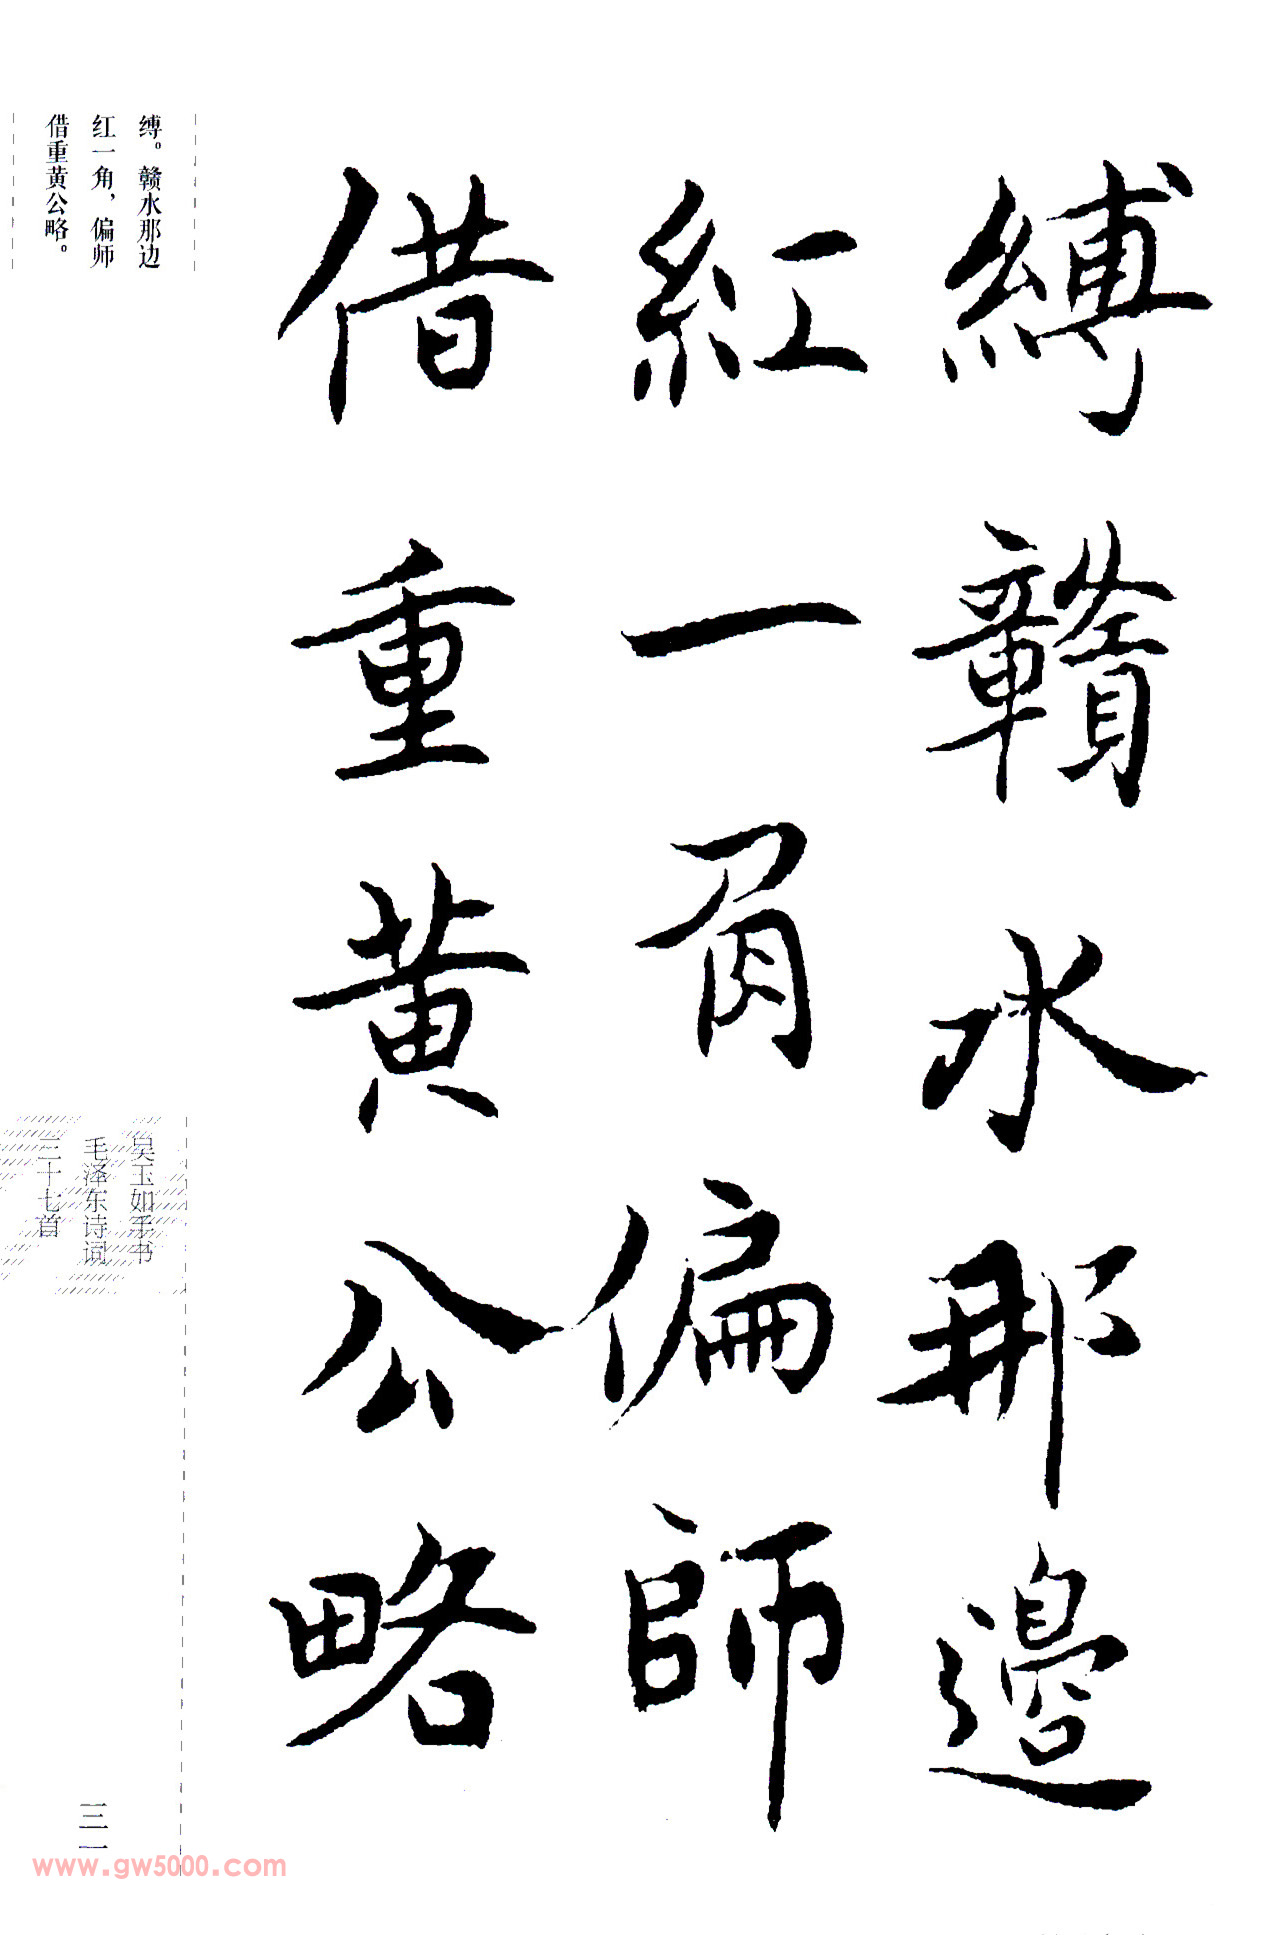 縛贛水那邊
紅一角偏師
借重黄公略
缚。赣水那边
红一角，偏师
借重黄公略。
吴玉如手书
毛泽东诗词
三十七首
三一
www.gw5000.com